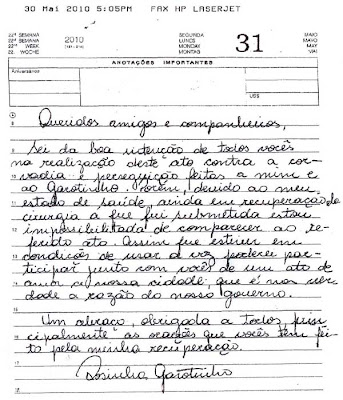 30 Mai 2010 5:05PM FAX HP LASERJET
22ª SEMANA
22ª SEMANA
22nd WEEK
22. WOCHE
2010
SEGUNDA
LUNES
MONDAY
MONTAG
31
MAIO
MAYO
MAY
MAI
ANOTAÇÕES IMPORTANTES
Aniversários
US$
Queridos amigos e companheiros,
Sei da boa intenção de todos vocês
na realização deste ato contra a co-
vardia e perseguição feitas a mim e
ao Garotinho. Porém, devido ao meu
estado de saúde, ainda em recuperação da
cirurgia a que fui submetida estou
impossibilitada de comparecer ao re-
ferido ato. Assim que estiver em
condição de usar a voz poderei par-
ticipar junto com vocês de um ato de
amor a nossa cidade que é na ver
dade a razão do nosso governo.
Um abraço, obrigada a todos prin
cipalmente as orações que vocês têm fei-
to pela minha recuperação.
Rosinha Garotinho